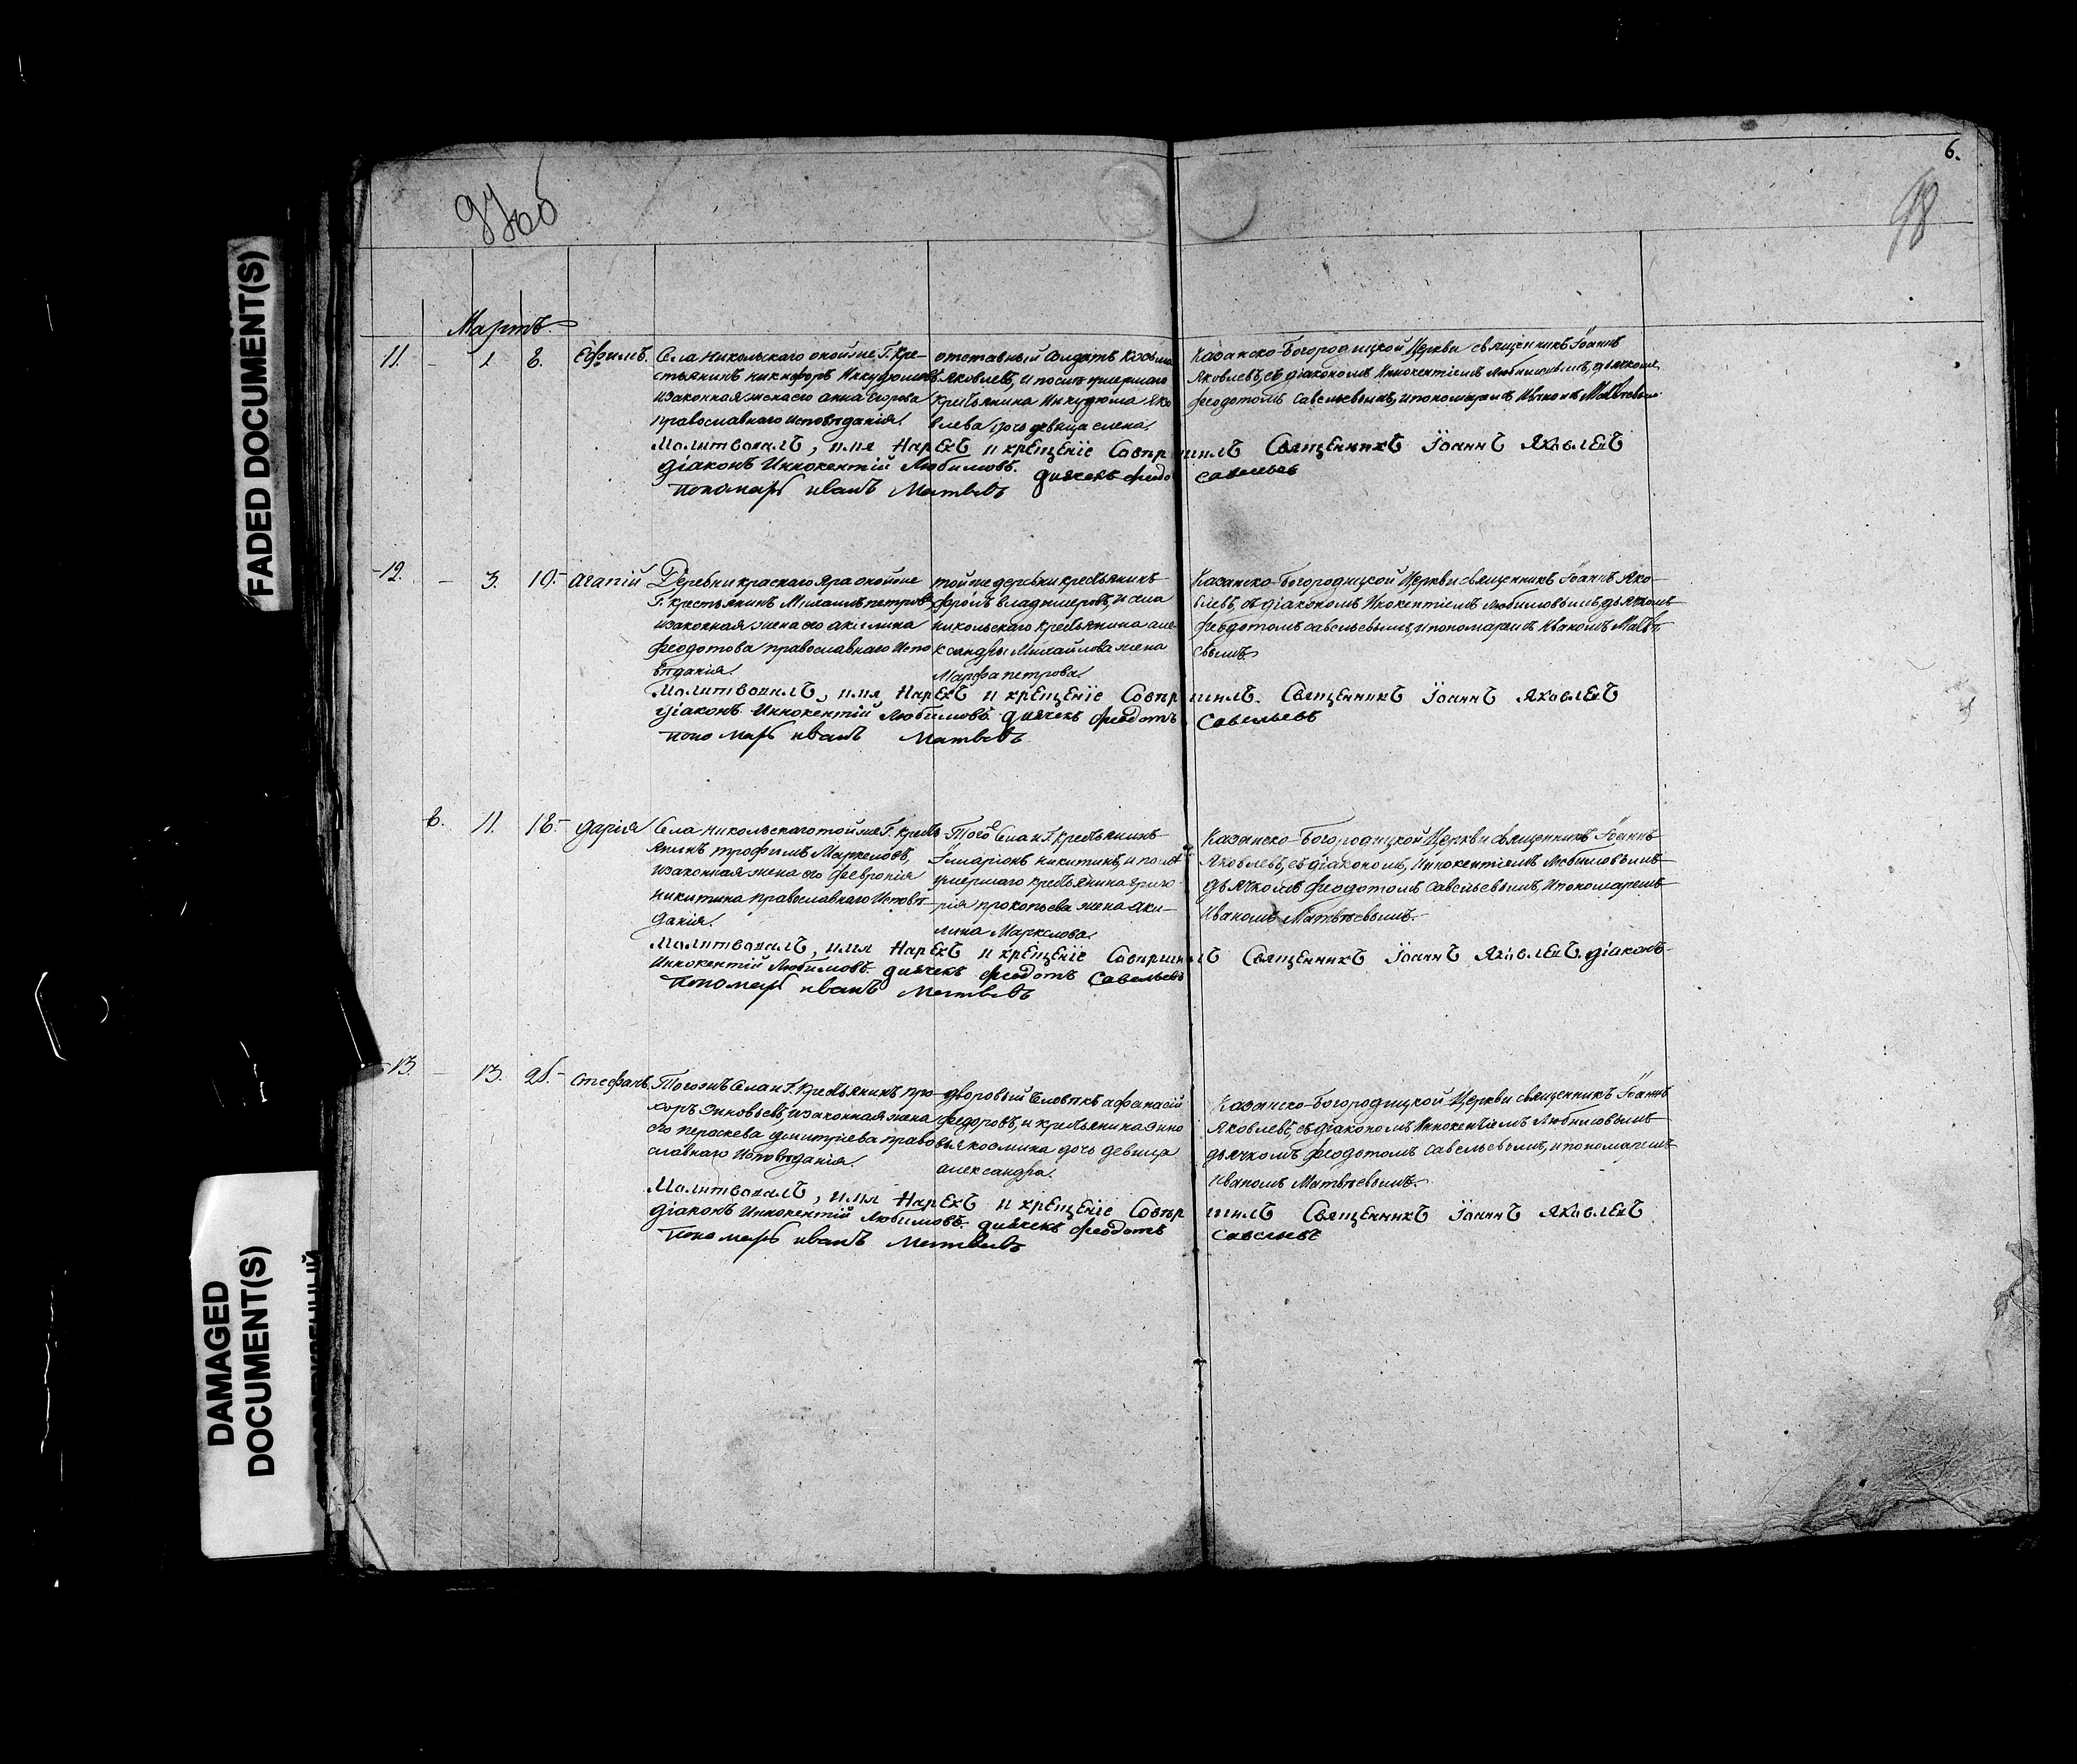 FADED DOCUMENT(S)
DAMAGED
DOCUMENT(S)
97об
6.
98
Мартъ.
11. - 1. 8. Ефимъ.
Села Никольскаго окойже Г. Кре-
стьянинъ Никифоръ Инкудимовъ
изаконная жена его анна Егорова
православнаго исповѣданія.
отставный Солдатъ Козьма
Яковлевъ, и послѣ умершаго
крестьянина Инкудюма Яко
влева дочь девица елена.
Казанско-Богородицкой Церкви священникъ Іоаннъ
Яковлевъ, съ діакономъ Иннокентіемъ Любимовымъ, дьячкомъ
феодотомъ Савельевымъ, ипономаремъ Иваномъ Матвѣевымъ.
Молитвовалъ, имя НарЕкЪ и крЕщЕніе Совѣршилъ СвящЕнникЪ ІоаннЪ ЯковлЕвЪ
діаконъ Иннокентій Любимовъ. диячекъ феодо Савельевъ
пономарь иванъ Матвевъ
12. - 3. 10. Агапій
Деревни краснаго Яра окойже
Г. Крестьянинъ Михаилъ петровъ
изаконная жена его акилина
феодотова православнаго Испо
вѣданія.
тойже деревни крестьянинъ
фролъ владимеровъ, и села
никольскаго крестьянина але
ксандры Михайлова жена
Марфа петрова.
Казанско-Богородицкой Церкви священникъ Іоаннъ Яко-
влевъ, съ діакономъ Инокентіемъ Любимовымъ, дьячкомъ
феодотомъ савельевымъ, ипономаремъ Иваномъ Матвѣ
евымъ.
Молитвовалъ, имя НарЕкЪ и крЕщЕніе Совѣршилъ. СвящЕнникЪ ІоаннЪ ЯковлЕвЪ
діаконъ Иннокентій Любимовъ. диячекъ феодотъ Савельевъ
пономарь иванъ Матвевъ
8. 11. 18. дарія
Села никольскаго тойже Г. кресть
янинъ трофимъ Маркеловъ,
изаконная жена его февронія
никитина православнаго Исповѣ-
данія.
Того Села и Г. Крестьянинъ
Іларіонъ никитинъ, и послѣ
умершаго крестьянина григо
рія прокопьева жена аки-
лина Маркелова.
Казанско-Богородицкой Церкви священникъ Іоаннъ
Яковлевъ, съ діакономъ, Иннокентіемъ Любимовымъ
дьячкомъ феодотомъ Савельевымъ, Ипономаремъ
Иваномъ Матвѣевымъ.
Молитвовалъ, имя НарЕкЪ и крЕщЕніе СовпршилЪ СвящЕнникЪ ІоаннЪ ЯковлЕвЪ. діаконъ
Иннокентій Любимовъ. диячекъ феодотъ Савельевъ
пономарь иванъ Матвевъ
13. - 13. 25. стефанъ.
Тогожъ Села и Г. Крестьянинъ про-
хоръ Зиновьевъ, изаконная жена
его пераскева дмитріева право
славнаго Исповѣданія.
дворовый Человѣкъ афанасій
федоровъ, и крестьянина Зино
вья космина дочь девица
александра.
Казанско-Богородицкой Церкви священникъ Іоаннъ
Яковлевъ, съ діакономъ Иннокентіемъ Любимовымъ
дьячкомъ феодотомъ савельевымъ, ипономаремъ
Иваномъ Матвѣевымъ.
Молитвовалъ, имя НарЕкЪ и крЕщЕніе Совѣршилъ СвящЕнникЪ ІоаннЪ ЯковлЕвЪ
діаконъ Иннокентій Любимовъ. диячекъ феодотъ Савельевъ
пономарь иванъ Матвевъ